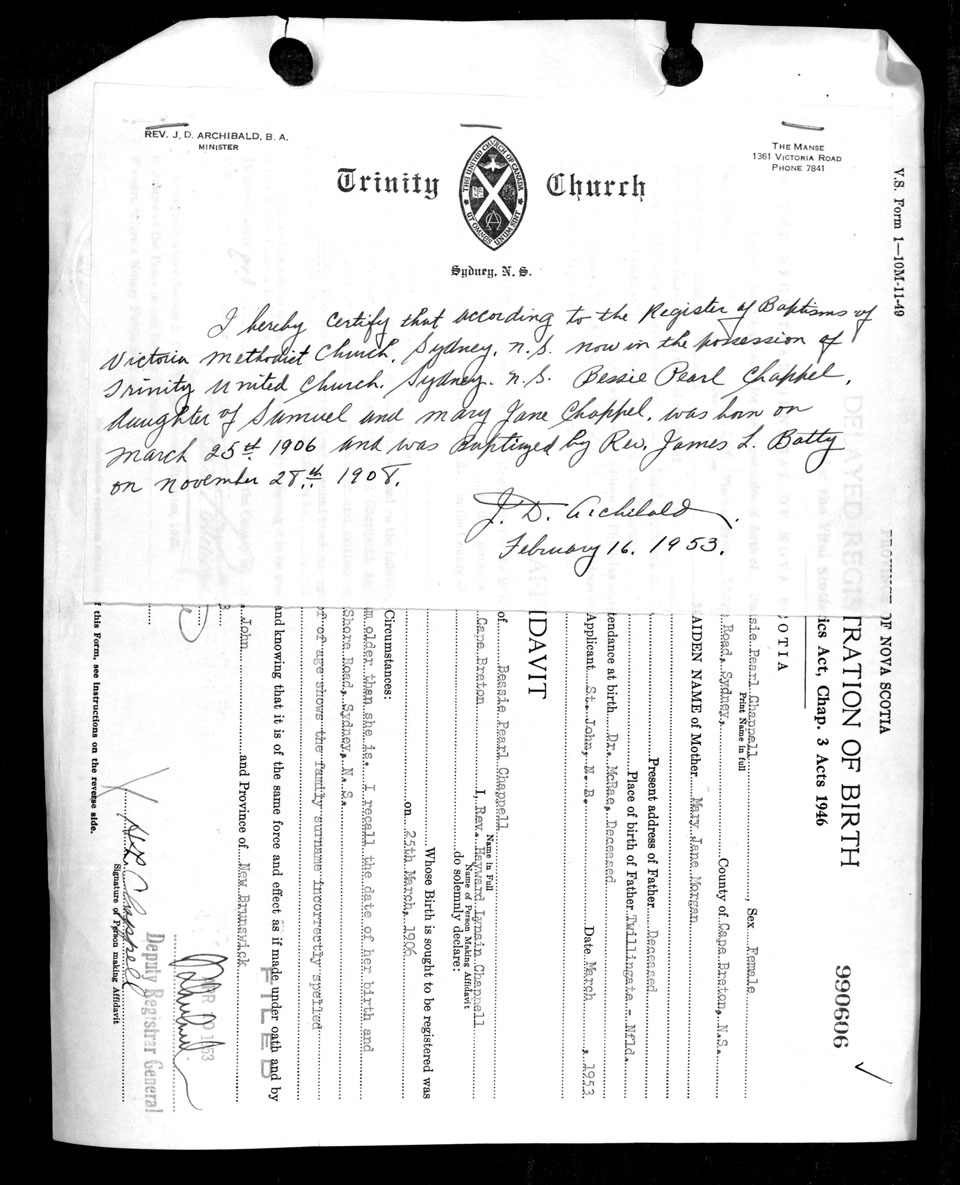 REV. J. D. ARCHIBALD, B. A.
MINISTER
THE MANSE
1361 VICTORIA ROAD
PHONE 7841
Trinity Church
THE UNITED CHURCH OF CANADA
UT OMNES UNUM SINT
Sydney, N. S.
I hereby certify that according to the Register of Baptisms of
Victoria Methodist Church, Sydney, N.S. now in the possession of
Trinity United Church, Sydney, N.S. Bessie Pearl Chappel,
daughter of Samuel and Mary Jane Chappel, was born on
March 25th 1906 and was baptized by Rev. James L. Batty
on November 28th 1908.
J. D. Archibald.
February 16. 1953.
V.S. Form 1—10M-11-49
PROVINCE OF NOVA SCOTIA
TRATION OF BIRTH
990606
ics Act, Chap. 3 Acts 1946
OTIA
sie Pearl Chappell, Sex Female
Print Name in full
Road, Sydney, County of Cape Breton, N.S.
AIDEN NAME of Mother Mary Jane Morgan
Present address of Father Deceased
Place of birth of Father Twillingate - Nfld.
tendance at birth Dr. McRae, Deceased
Applicant St. John, N. B. Date March, 1953
IDAVIT
of Bessie Pearl Chappell
Name in Full
Cape Breton I, Rev. Hayward Lynsin Chappell
Name of Person Making Affidavit
do solemnly declare:
Whose Birth is sought to be registered was
on 25th March, 1906
Circumstances:
m older than she is. I recall the date of her birth and
Shore Road, Sydney, N. S.
f of age shows the family surname incorrectly spelled
and knowing that it is of the same force and effect as if made under oath and by
FILED
John and Province of New Brunswick
1953
Deputy Registrar General
H L Chappell
Signature of Person making Affidavit
f this Form, see instructions on the reverse side.